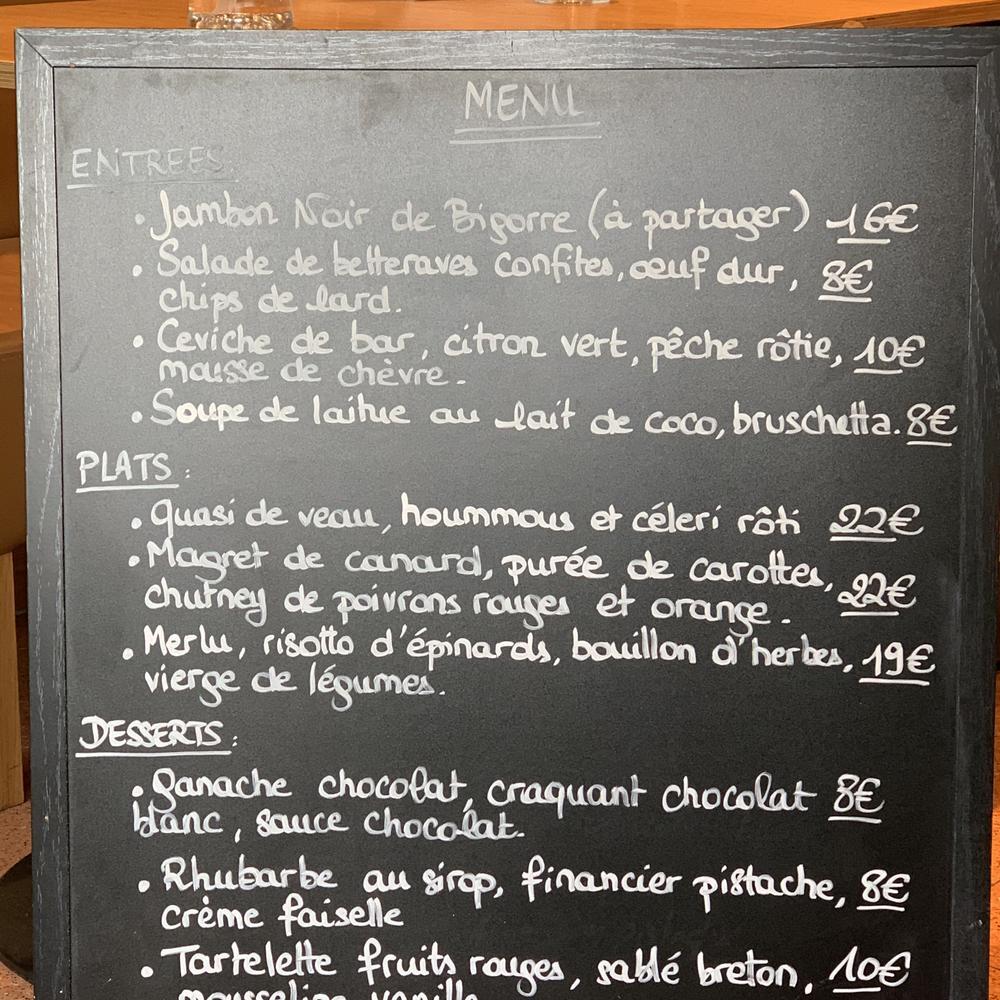 MENU
ENTREES
• Jambon Noir de Bigorre (à partager) 16€
• Salade de betteraves confites, œuf dur, 8€
chips de lard.
• Ceviche de bar, citron vert, pêche rôtie, 10€
mousse de chèvre.
• Soupe de laitue au lait de coco, bruschetta. 8€
PLATS :
• Quasi de veau, hoummous et céleri rôti 22€
• Magret de canard, purée de carottes, 22€
chutney de poivrons rouges et orange.
• Merlu, risotto d'épinards, bouillon d'herbes, 19€
vierge de légumes.
DESSERTS :
• Ganache chocolat, craquant chocolat 8€
blanc, sauce chocolat.
• Rhubarbe au sirop, financier pistache, 8€
crème faiselle
• Tartelette fruits rouges, sablé breton, 10€
mousseline vanille